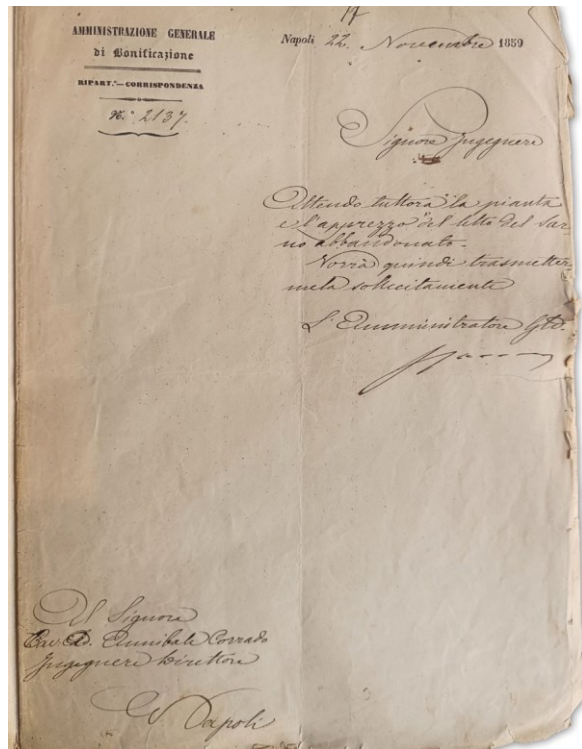 17
AMMINISTRAZIONE GENERALE
di Bonificazione
RIPART.° — CORRISPONDENZA
N.° 2137.
Napoli 22. Novembre 1859
Signore Ingegnere
Attendo tuttora la pianta
e l'apprezzo del letto del Sar
no abbandonato.
Vorrà quindi trasmetter
mela sollecitamente
L'Amministratore Gle.
Al Signore
Cav. D. Annibale Corrado
Ingegnere Direttore
Napoli